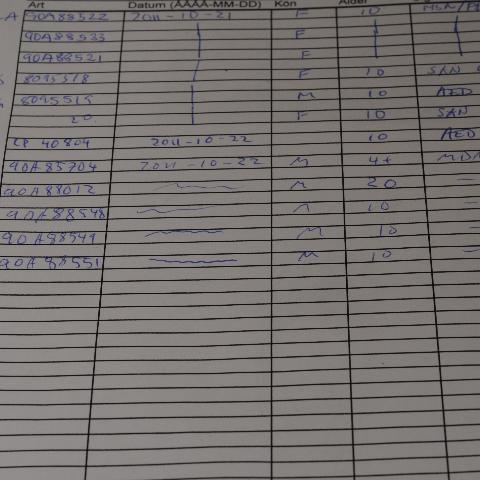 Art Datum (ÅÅÅÅ-MM-DD) Kön Ålder
A 90A88522 2011-10-21 F 10
90A88533 F
90A88521 F
8095518 F 10 SAN
8095515 M 10 AED
20. F 10 SAN
40804 2011-10-22 10 AED
90A85704 2011-10-22 M 4+
90A88012 M 20
90A88548 10
90A88549 M 10
90A88551 M 10